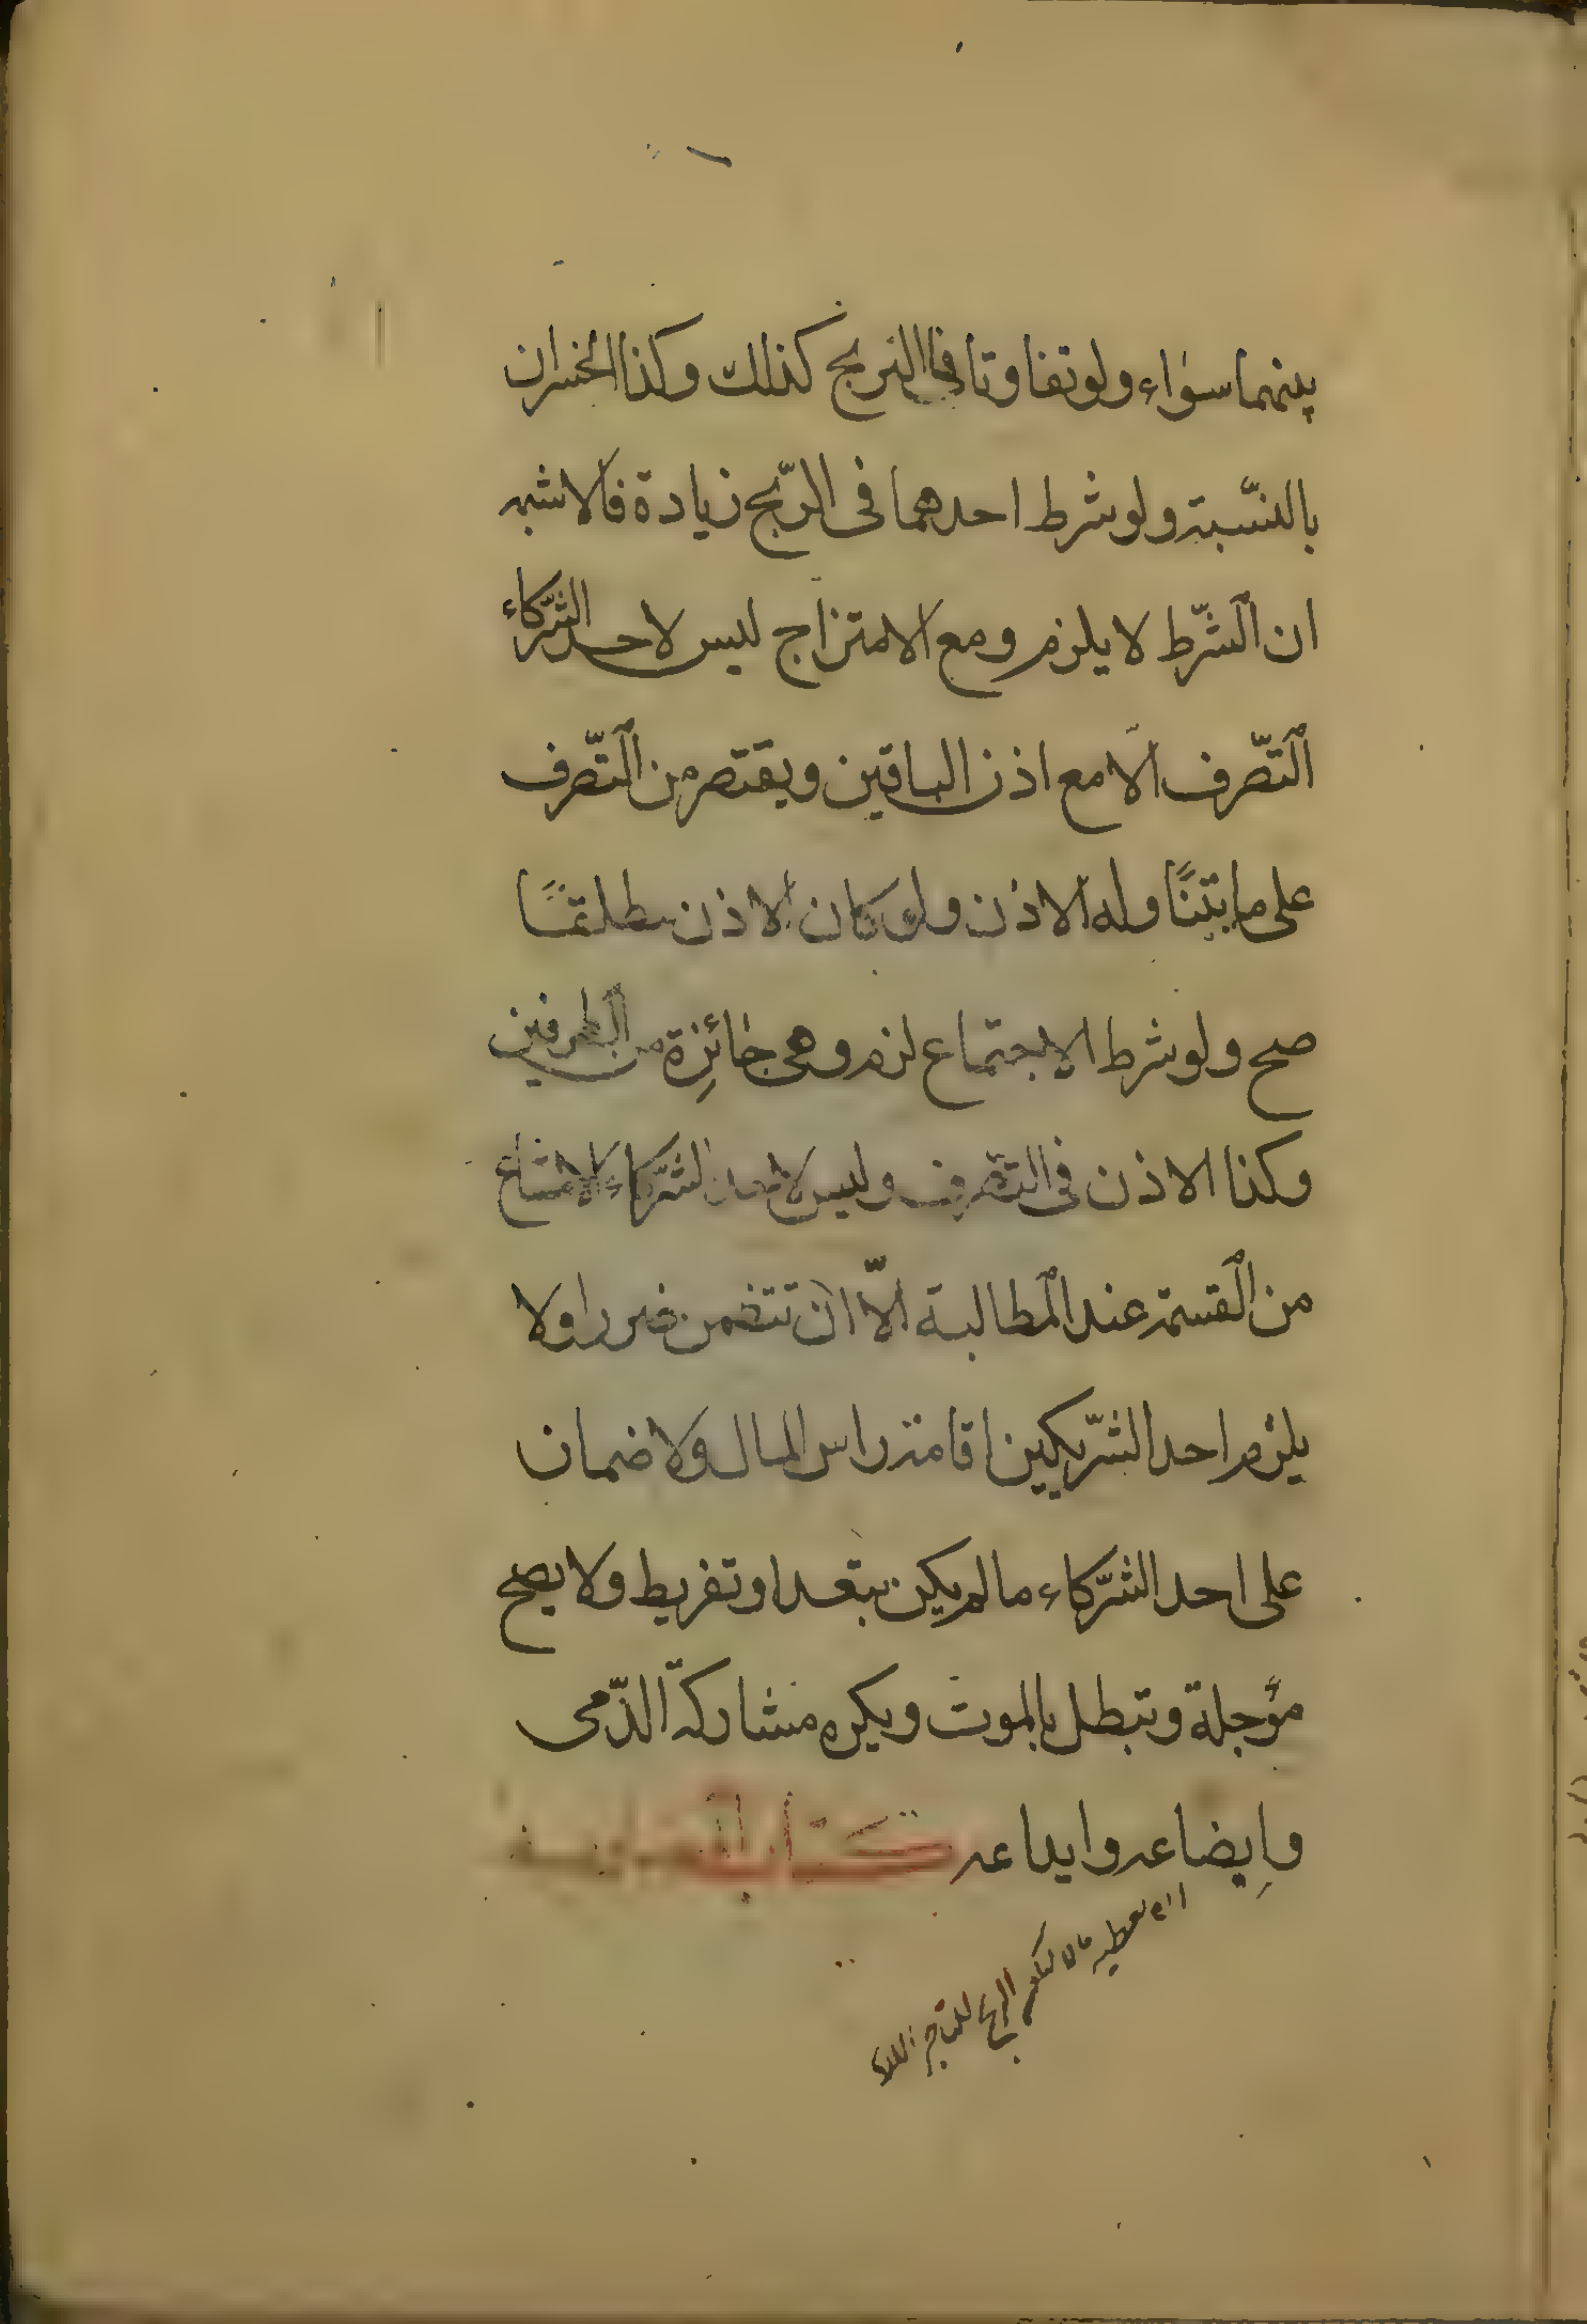 بينهما سواء ولو تفاوتا فالربح كذلك وكذا الخسران
بالنّسبة ولو شرط احدهما فى الرّبح زيادة فالاشبه
ان الشّرط لا يلزم ومع الامتزاج ليس لاحد الشّركاء
التّصرف الا مع اذن الباقين ويقتصر من التّصرف
على ما يتناوله الاذن ولو كان الاذن مطلقًا
صح ولو شرط الاجتماع لزم وهى جائزة من الطرفين
وكذا الاذن فى التصرف وليس لاحد الشّركاء الامتناع
من القسمة عند المطالبة الّا ان تتضمن ضررا ولا
يلزم احد الشّريكين اقامة راس المال ولا ضمان
على احد الشّركاء ما لم يكن بتعد او تفريط ولا يصح
مؤجلة وتبطل بالموت ويكره مشاركة الذّمى
وإبضاعه وايداعه كتاب
يعطيه مالا الربح